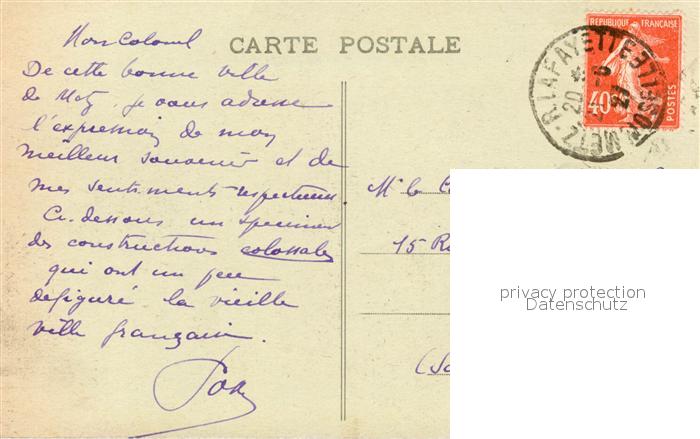 CARTE POSTALE
Mon Colonel
De cette bonne ville
de Metz, je vous adresse
l'expression de mon
meilleur souvenir et de
mes sentiments respectueux.
Ci-dessous un specimen
des constructions colossales
qui ont un peu
défiguré la vieille
ville française.
RÉPUBLIQUE FRANÇAISE
40c
POSTES
METZ-R. LAFAYETTE
MOSELLE
20
27
Mr le
15 R
privacy protection
Datenschutz